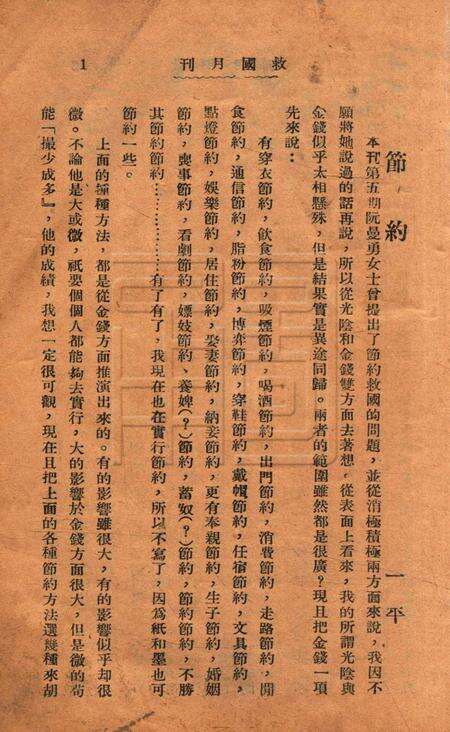 救國月刊
1
節約
一平
本刊第五期阮曼勇女士曾提出了節約救國的問題，並從消極積極兩方面來說，我因不
願將她說過的話再說，所以從光陰和金錢雙方面去著想，從表面上看來，我的所謂光陰與
金錢似乎太相懸殊，但是結果實是異途同歸。兩者的範圍雖然都是很廣？現且把金錢一項
先來說：
有穿衣節約，飲食節約，吸煙節約，喝酒節約，出門節約，消費節約，走路節約，閒
食節約，通信節約，脂粉節約，博弈節約，穿鞋節約，戴帽節約，住宿節約，文具節約，
點燈節約，娛樂節約，居住節約，娶妻節約，納妾節約，更有奉親節約，生子節約，婚姻
節約，喪事節約，看劇節約，嫖妓節約、養婢（？）節約，蓄奴（？）節約，節約節約，不勝
其節約節約………………有了有了，我現在也在實行節約，所以不寫了，因為紙和墨也可
節約一些。
上面的種種方法，都是從金錢方面推演出來的。有的影響雖很大，有的影響似乎却很
微。不論他是大或微，祇要個個人都能夠去實行，大的影響於金錢方面很大，但是微的苟
能「撮少成多』，他的成績，我想一定很可觀，現在且把上面的各種節約方法選幾種來胡